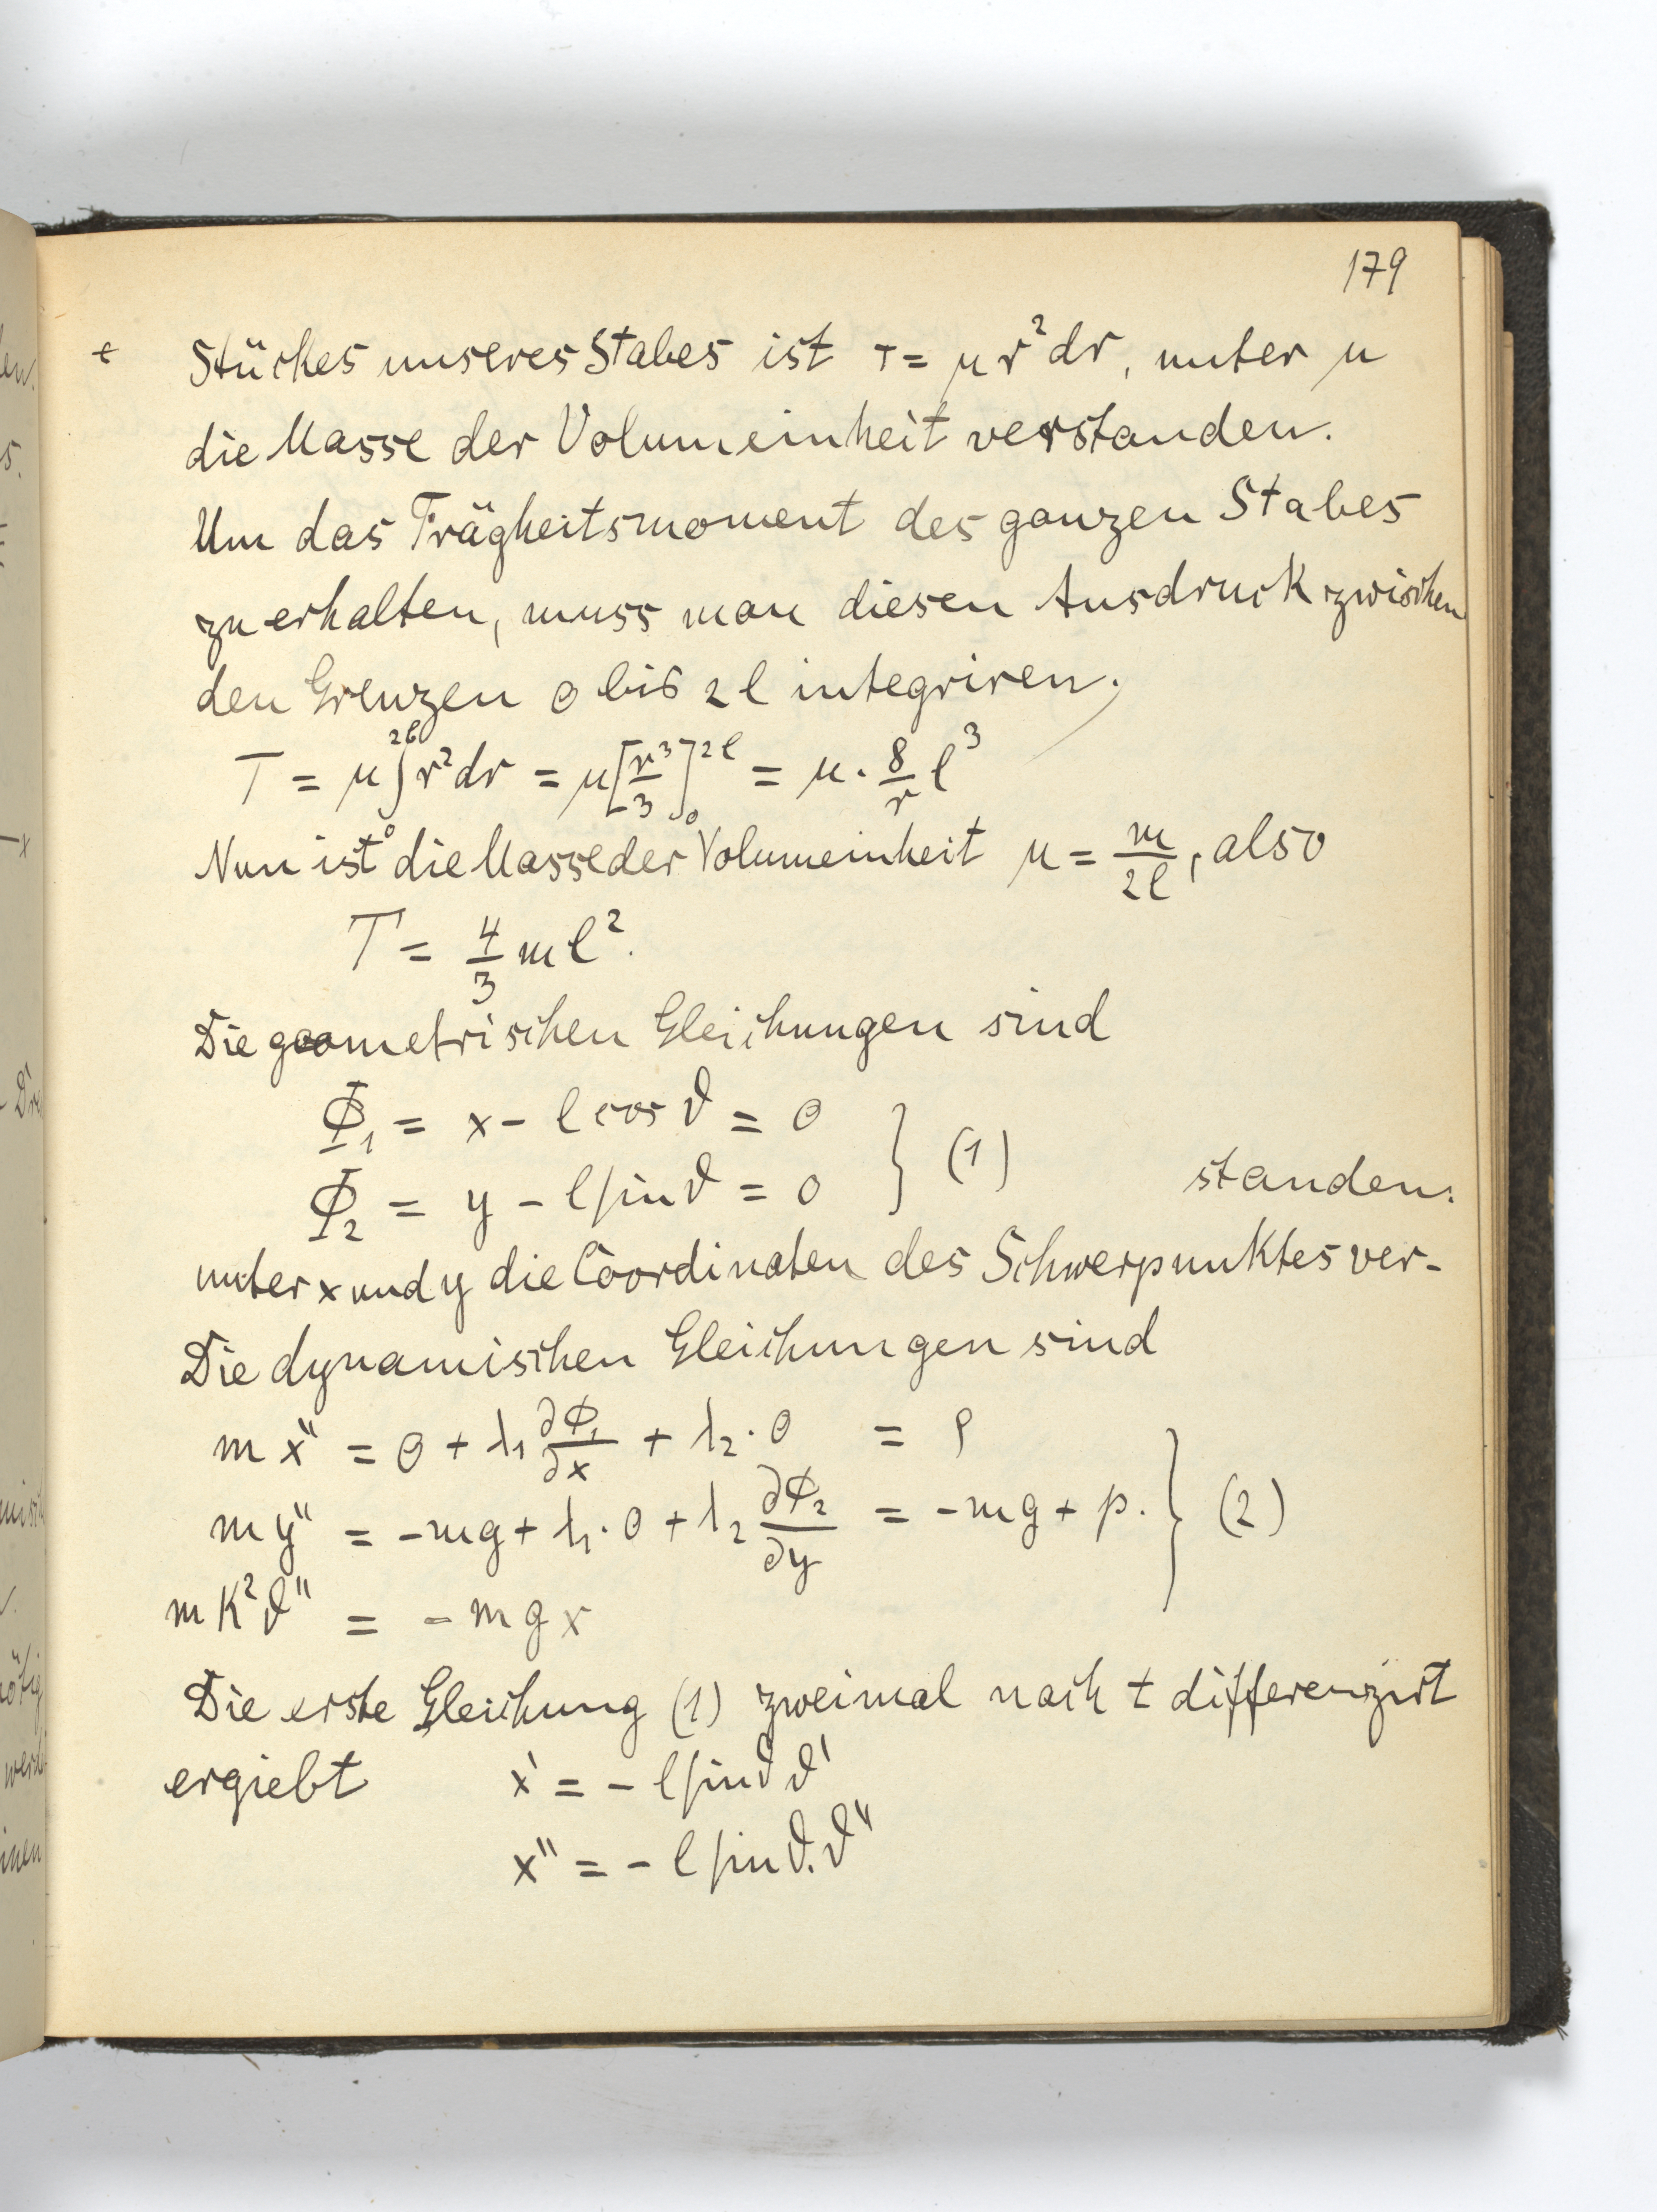 179
Stückes unseres Stabes ist T = μ r² dr, unter μ
die Masse der Volumeinheit verstanden.
Um das Trägheitsmoment des ganzen Stabes
zu erhalten, muss man diesen Ausdruck zwischen
den Grenzen 0 bis 2l integriren.
T = μ ∫₀²ˡ r² dr = μ [r³/3]₀²ˡ = μ · 8/r l³
Nun ist die Masse der Volumeinheit μ = m/2l, also
T = 4/3 m l².
Die geometrischen Gleichungen sind
Φ₁ = x - l cos ϑ = 0
Φ₂ = y - l sin ϑ = 0 } (1)
standen.
unter x und y die Coordinaten des Schwerpunktes ver-
Die dynamischen Gleichungen sind
m x'' = 0 + λ₁ ∂Φ₁/∂x + λ₂ · 0 = ρ
m y'' = -mg + λ₁ · 0 + λ₂ ∂Φ₂/∂y = -mg + p. } (2)
m K² ϑ'' = - m g x
Die erste Gleichung (1) zweimal nach t differenzirt
ergiebt x' = - l sin ϑ ϑ'
x'' = - l sin ϑ. ϑ''